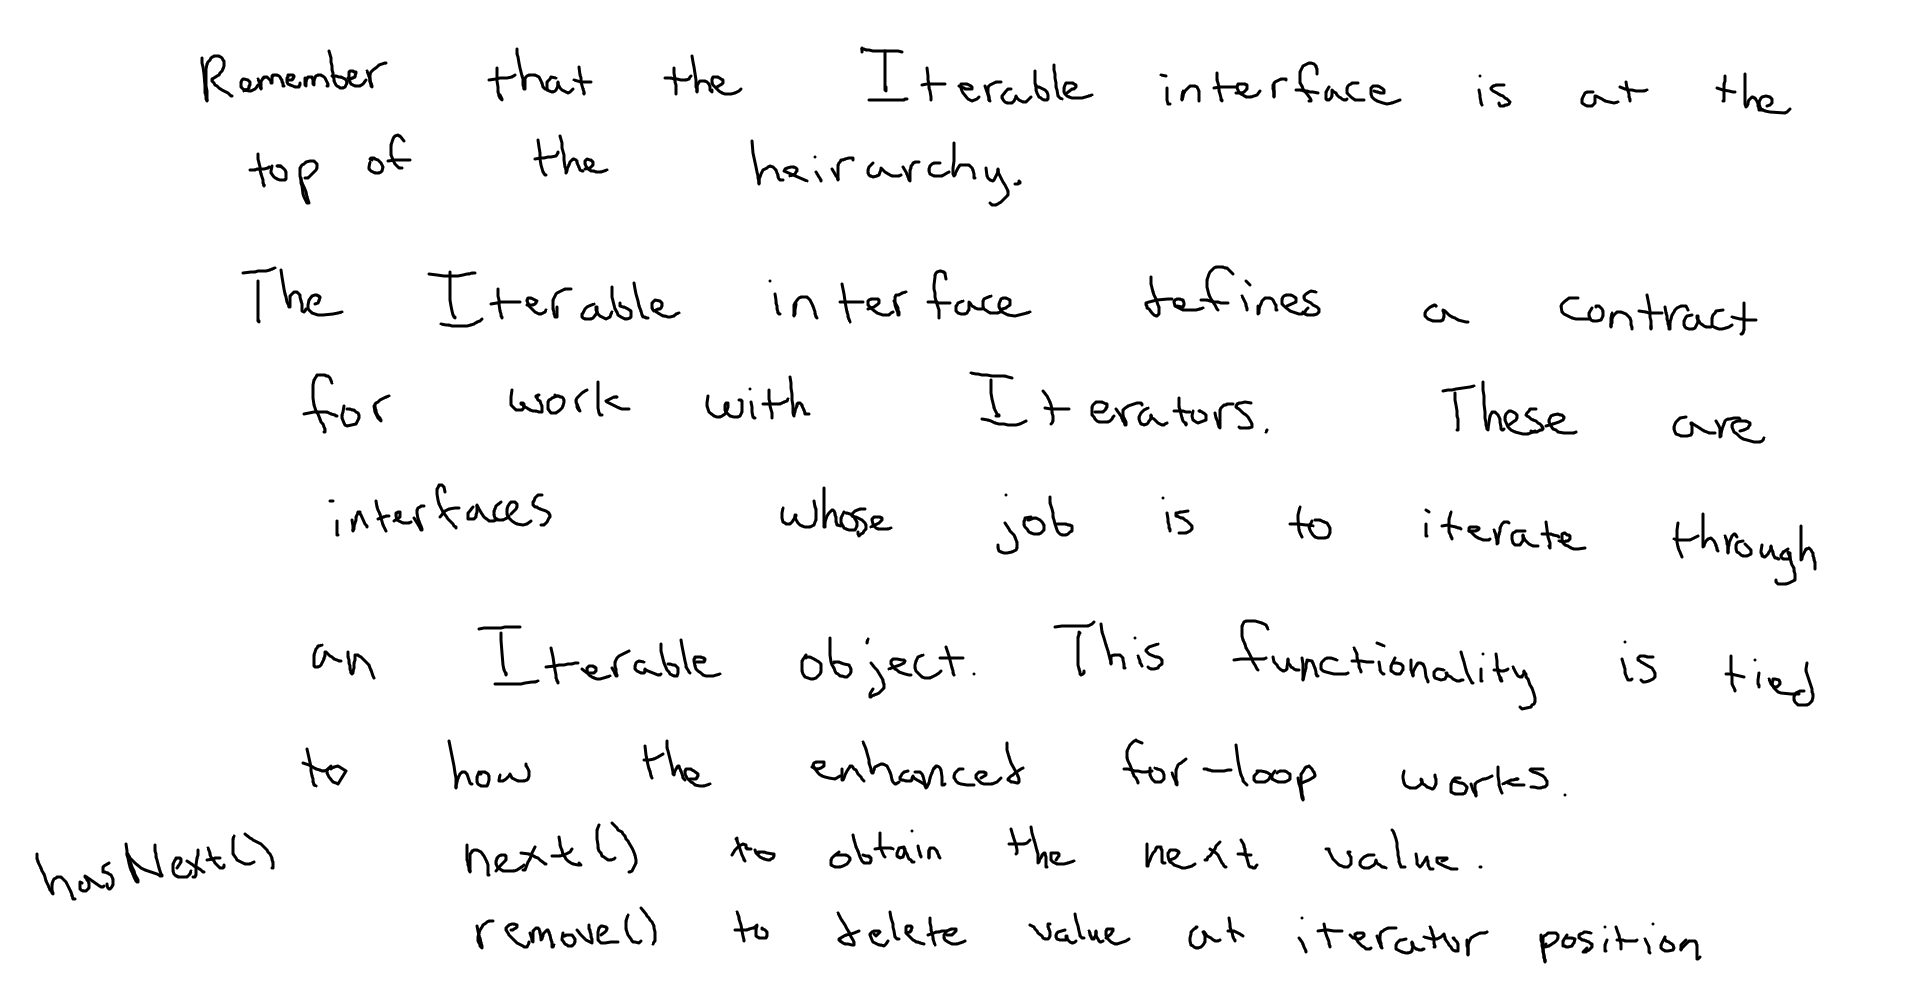 Remember that the Iterable interface is at the
top of the heirarchy.
The Iterable interface defines a contract
for work with Iterators. These are
interfaces whose job is to iterate through
an Iterable object. This functionality is tied
to how the enhanced for-loop works.
hasNext() next() to obtain the next value.
remove() to delete value at iterator position